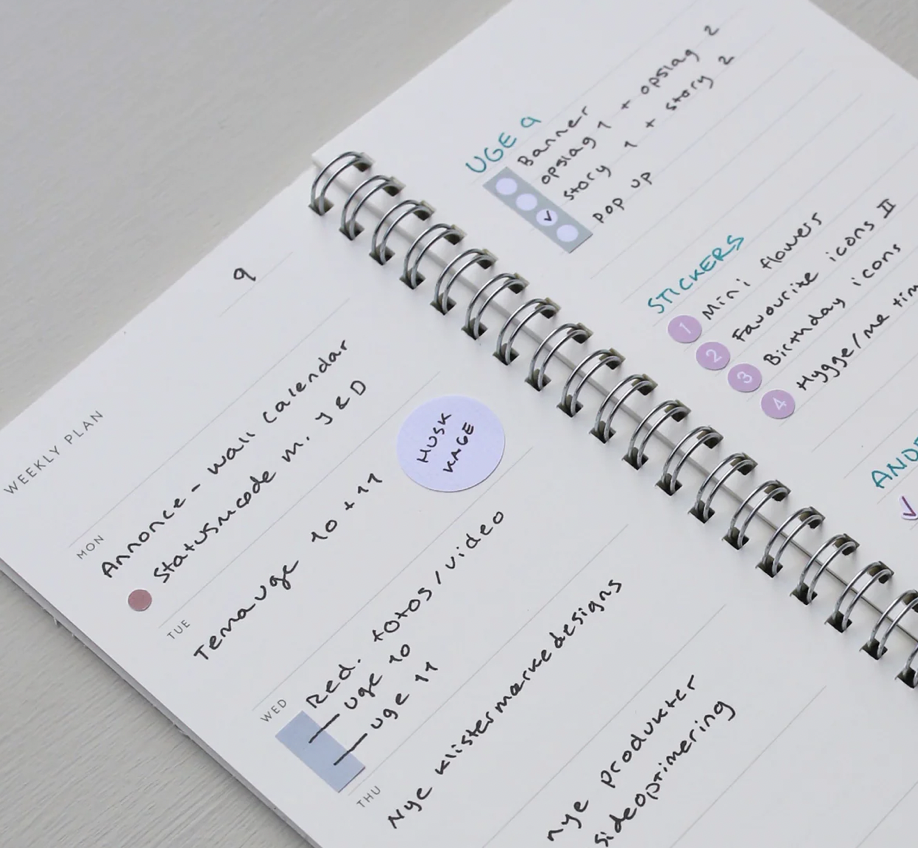 9
WEEKLY PLAN
MON
Annonce - wall calendar
Statusmøde m. J & D
TUE
Temauge 10 + 11
HUSK
KAGE
WED
Red. fotos / video
— uge 10
— uge 11
THU
Nye klistermærkedesigns
nye produkter
sideoptimering
UGE 9
Banner
opslag 1 + opslag 2
story 1 + story 2
pop up
STICKERS
1 Mini flowers
2 Favourite icons II
3 Birthday icons
4 Hygge/me